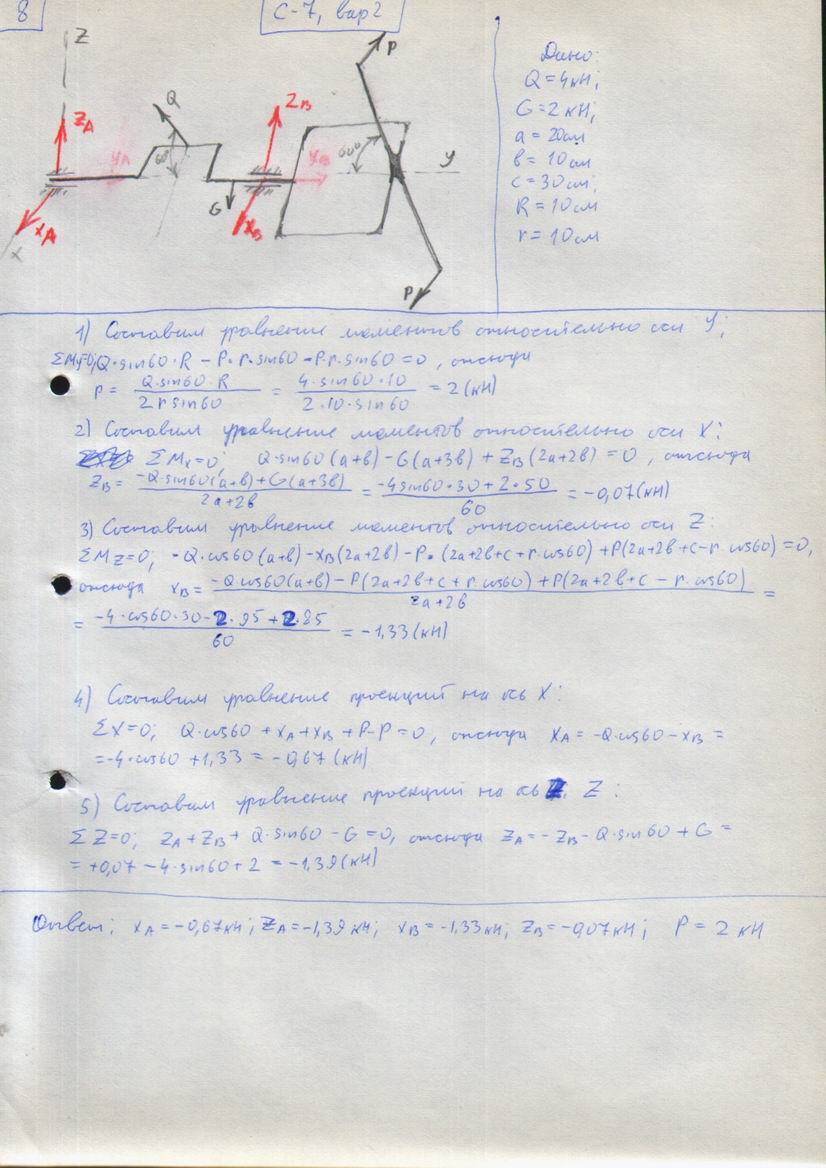 8
С-7, вар 2
Z
P
Q
ZA
ZB
YA
60°
YB
60°
y
G
XA
XB
X
P
Дано:
Q = 4кН;
G = 2 кН;
a = 20см
в = 10 см
c = 30 см;
R = 10 см
r = 10см
1) Составим уравнение моментов относительно оси Y;
ΣMy=0; Q·sin60·R - P·r·sin60 - P·r·sin60 = 0, отсюда
P = Q·sin60·R / 2r sin60 = 4·sin60·10 / 2·10·sin60 = 2 (кН)
2) Составим уравнение моментов относительно оси X:
ΣMx=0; Q·sin60(a+в) - G(a+3в) + ZB(2a+2в) = 0, отсюда
ZB = -Q·sin60(a+в)+G(a+3в) / 2a+2в = -4sin60·30+2·50 / 60 = -0,07(кН)
3) Составим уравнение моментов относительно оси Z:
ΣMZ=0; -Q·cos60(a+в) - XB(2a+2в) - P·(2a+2в+c+r·cos60) + P(2a+2в+c-r·cos60) = 0,
отсюда XB = -Q cos60(a+в) - P(2a+2в+c+r·cos60) + P(2a+2в+c-r·cos60) / 2a+2в =
= -4·cos60·30-2·95+2·85 / 60 = -1,33(кН)
4) Составим уравнение проекций на ось X:
ΣX=0; Q·cos60 + XA + XB + P - P = 0, отсюда XA = -Q·cos60 - XB =
= -4·cos60 + 1,33 = -0,67 (кН)
5) Составим уравнение проекций на ось Z:
ΣZ=0; ZA + ZB + Q·sin60 - G = 0, отсюда ZA = -ZB - Q·sin60 + G =
= +0,07 - 4·sin60 + 2 = -1,39(кН)
Ответ: XA = -0,67кН; ZA = -1,39 кН; XB = -1,33кН; ZB = -0,07кН; P = 2 кН